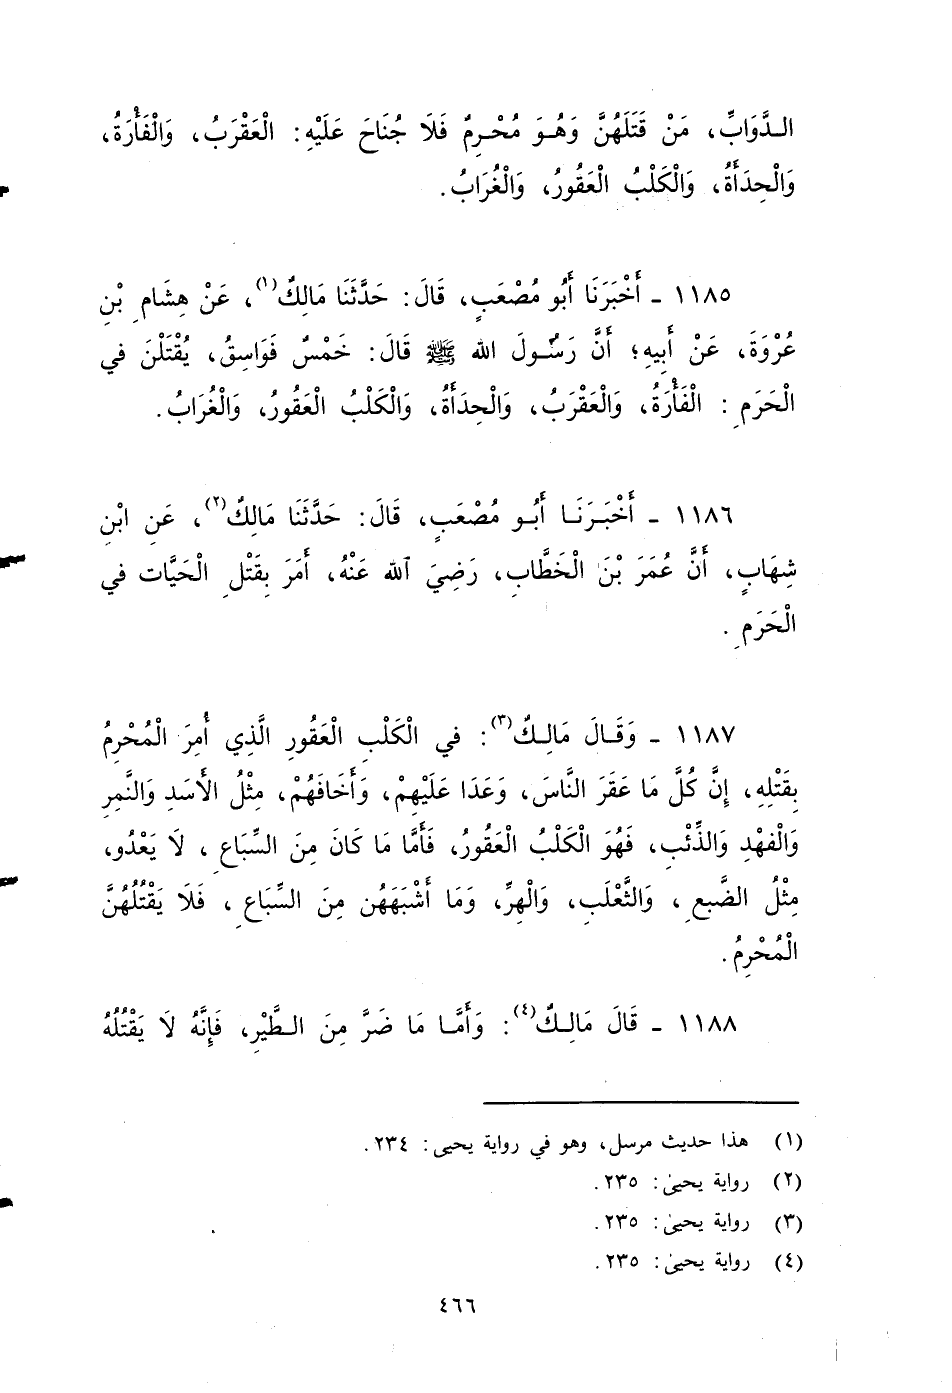 الدَّوَابِّ، مَنْ قَتَلَهُنَّ وَهُوَ مُحْرِمٌ فَلَا جُنَاحَ عَلَيْهِ: الْعَقْرَبُ، وَالْفَأْرَةُ،
وَالْحِدَأَةُ، وَالْكَلْبُ الْعَقُورُ، وَالْغُرَابُ.
١١٨٥ - أَخْبَرَنَا أَبُو مُصْعَبٍ، قَالَ: حَدَّثَنَا مَالِكٌ(١)، عَنْ هِشَامِ بْنِ
عُرْوَةَ، عَنْ أَبِيهِ؛ أَنَّ رَسُولَ الله ﷺ قَالَ: خَمْسٌ فَوَاسِقُ، يُقْتَلْنَ في
الْحَرَمِ: الْفَأْرَةُ، وَالْعَقْرَبُ، وَالْحِدَأَةُ، وَالْكَلْبُ الْعَقُورُ، وَالْغُرَابُ.
١١٨٦ - أَخْبَرَنَا أَبُو مُصْعَبٍ، قَالَ: حَدَّثَنَا مَالِكٌ(٢)، عَنِ ابْنِ
شِهَابٍ، أَنَّ عُمَرَ بْنَ الْخَطَّابِ، رَضِيَ ٱلله عَنْهُ، أَمَرَ بِقَتْلِ الْحَيَّات في
الْحَرَمِ.
١١٨٧ - وَقَالَ مَالِكٌ(٣): في الْكَلْبِ الْعَقُورِ الَّذِي أُمِرَ الْمُحْرِمُ
بِقَتْلِهِ، إِنَّ كُلَّ مَا عَقَرَ النَّاسَ، وَعَدَا عَلَيْهِمْ، وَأَخَافَهُمْ، مِثْلُ الأَسَدِ وَالنَّمِرِ
وَالْفَهْدِ وَالذِّئْبِ، فَهُوَ الْكَلْبُ الْعَقُورُ، فَأَمَّا مَا كَانَ مِنَ السِّبَاعِ، لَا يَعْدُو،
مِثْلُ الضَّبعِ، وَالثَّعْلَبِ، وَالْهِرِّ، وَمَا أَشْبَهَهُن مِنَ السِّبَاعِ، فَلَا يَقْتُلُهُنَّ
الْمُحْرِمُ.
١١٨٨ - قَالَ مَالِكٌ(٤): وَأَمَّا مَا ضَرَّ مِنَ الطَّيْرِ، فَإِنَّهُ لَا يَقْتُلُهُ
(١) هذا حديث مرسل، وهو في رواية يحيى: ٢٣٤.
(٢) رواية يحيىٰ: ٢٣٥.
(٣) رواية يحيىٰ: ٢٣٥.
(٤) رواية يحيىٰ: ٢٣٥.
٤٦٦